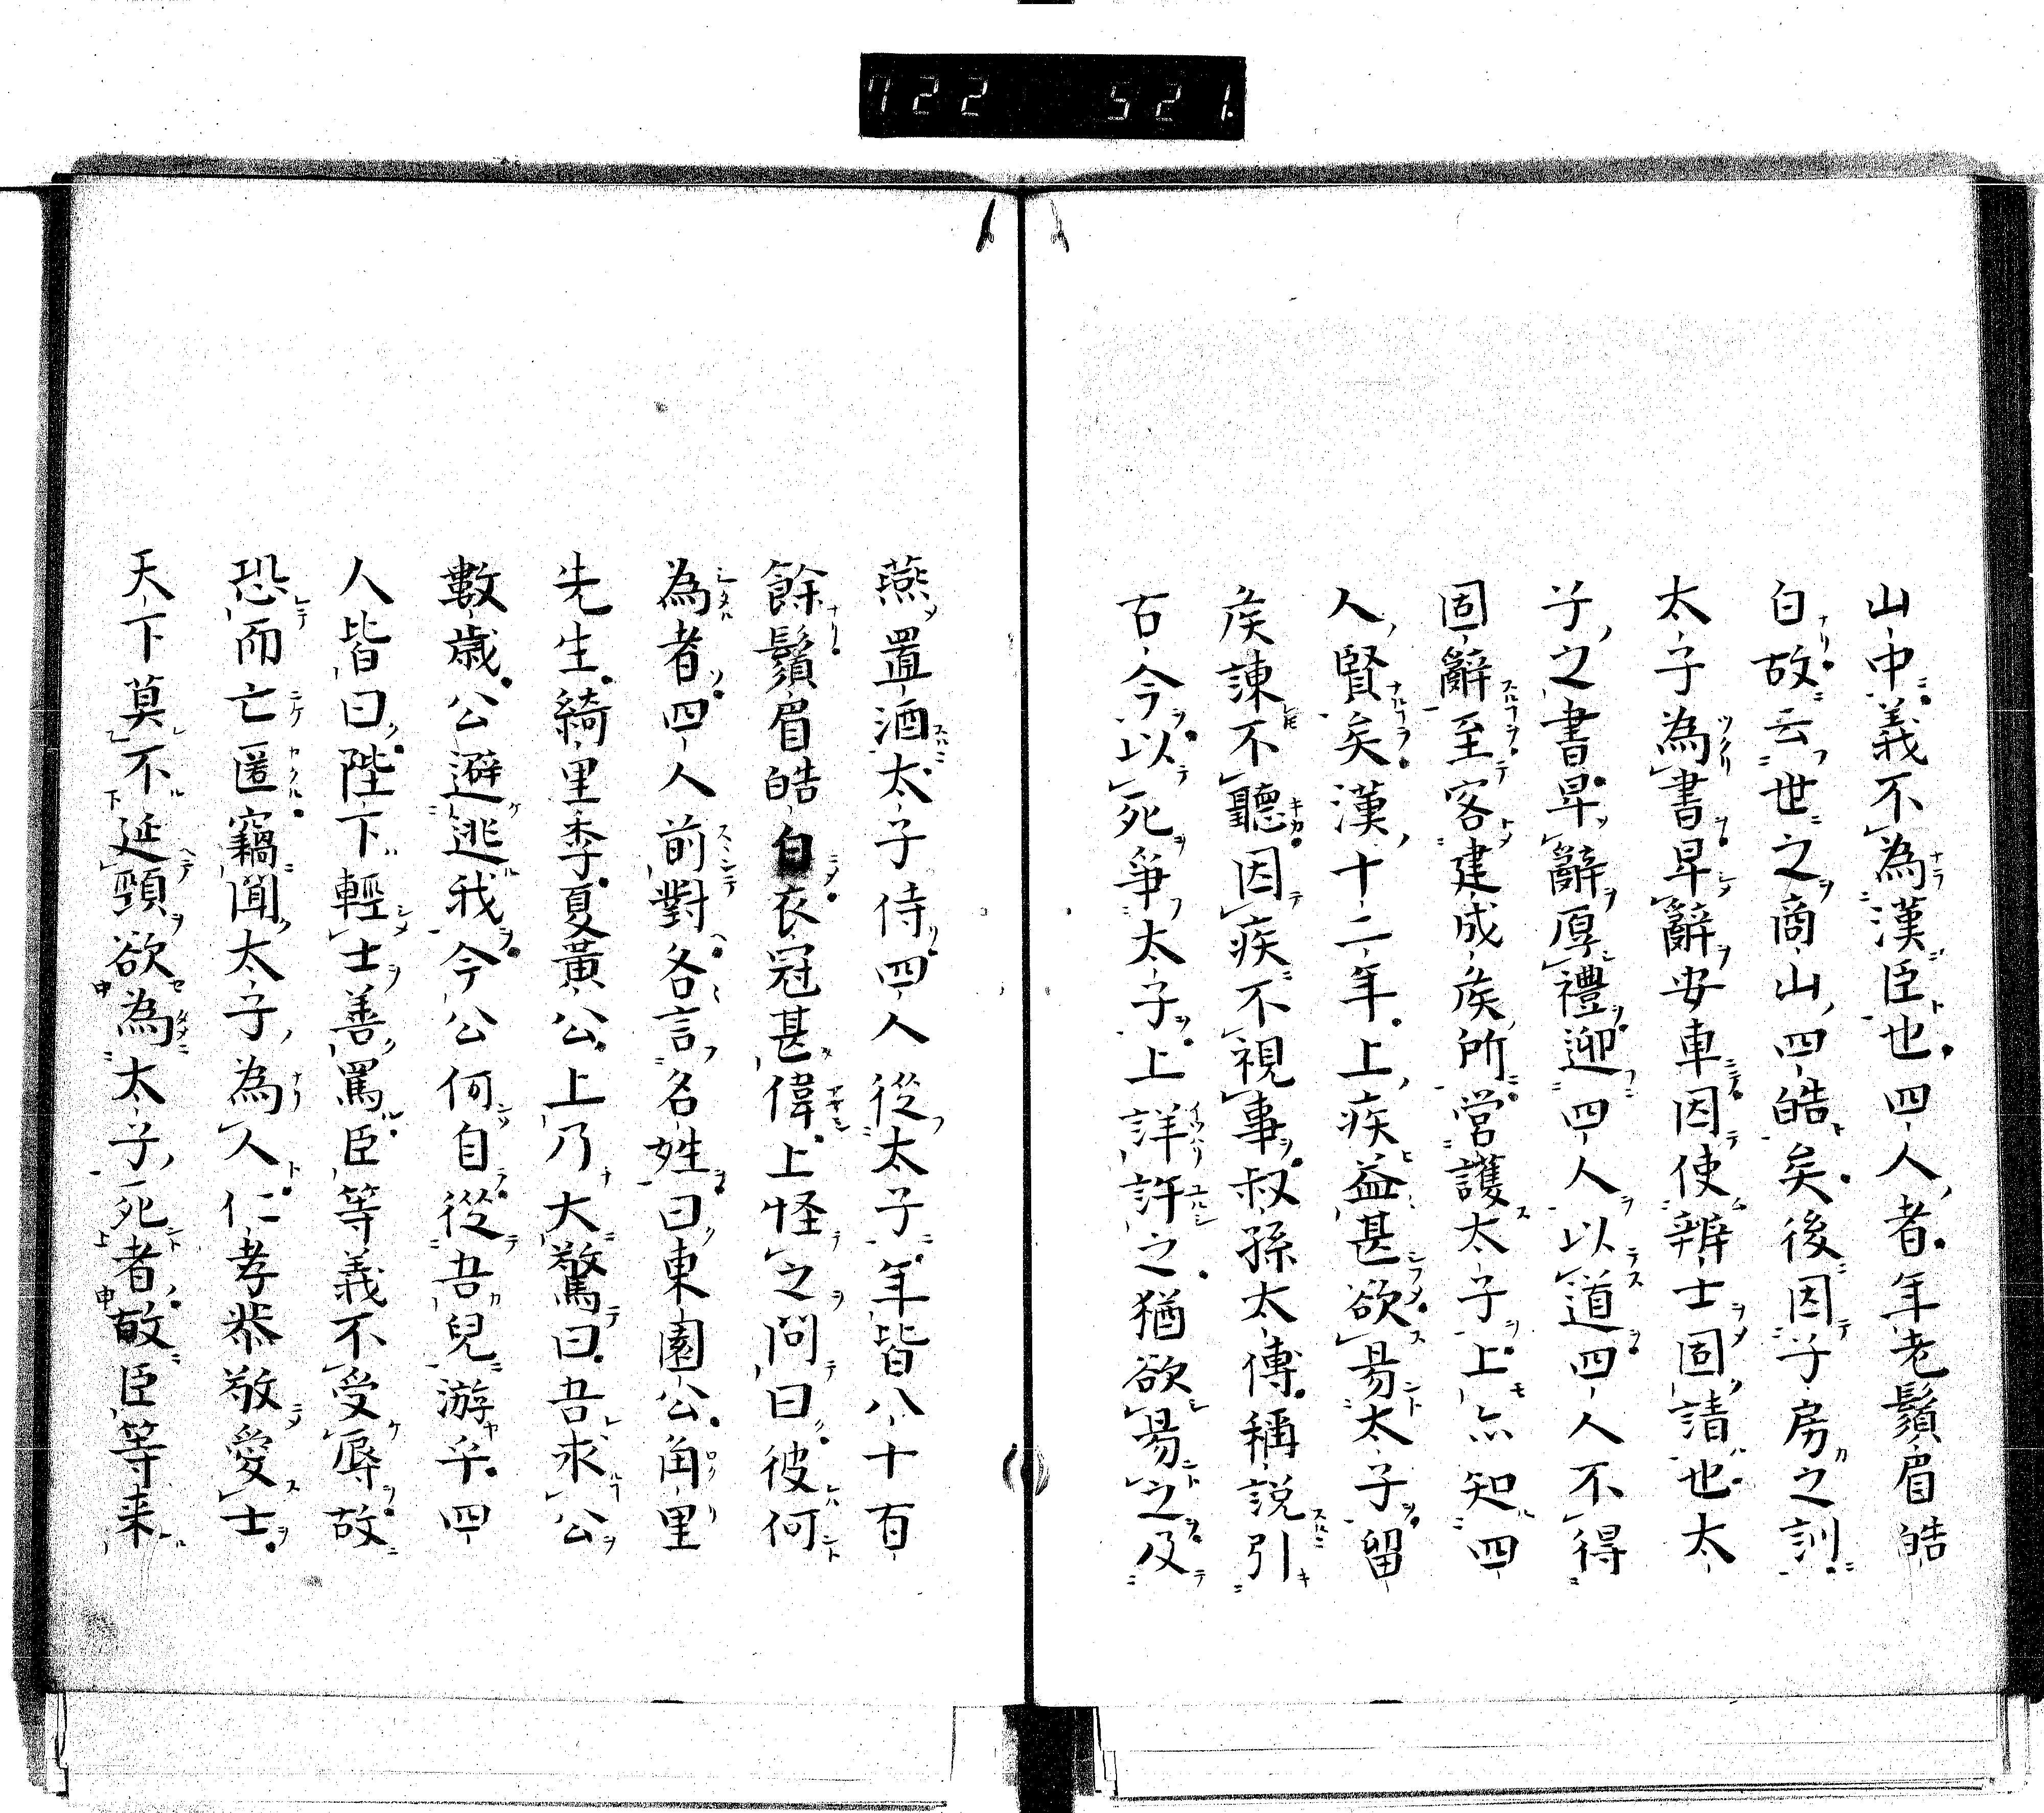 722 521
山中義不為漢臣也四人者年老鬚眉皓
白故云世之商山四皓矣後因子房之訓
太子為書卑辭安車因使辨士固請也太
子之書卑辭厚禮迎四人以道四人不得
固辭至客建成侯所営護太子上亦知四
人賢矣漢十二年上疾益甚欲易太子留
侯諌不聽因疾不視事叔孫太傅稱説引
古今以死爭太子上詳許之猶欲易之及
燕置酒太子侍四人從太子年皆八十有
餘鬚眉皓白衣冠甚偉上怪之問曰彼何
為者四人前對各言名姓曰東園公角里
先生綺里季夏黄公上乃大驚曰吾求公
數歳公避逃我今公何自從吾兒游乎四
人皆曰陛下輕士善罵臣等義不受辱故
恐而亡匿竊聞太子為人仁孝恭敬愛士
天下莫不延頸欲為太子死者故臣等来